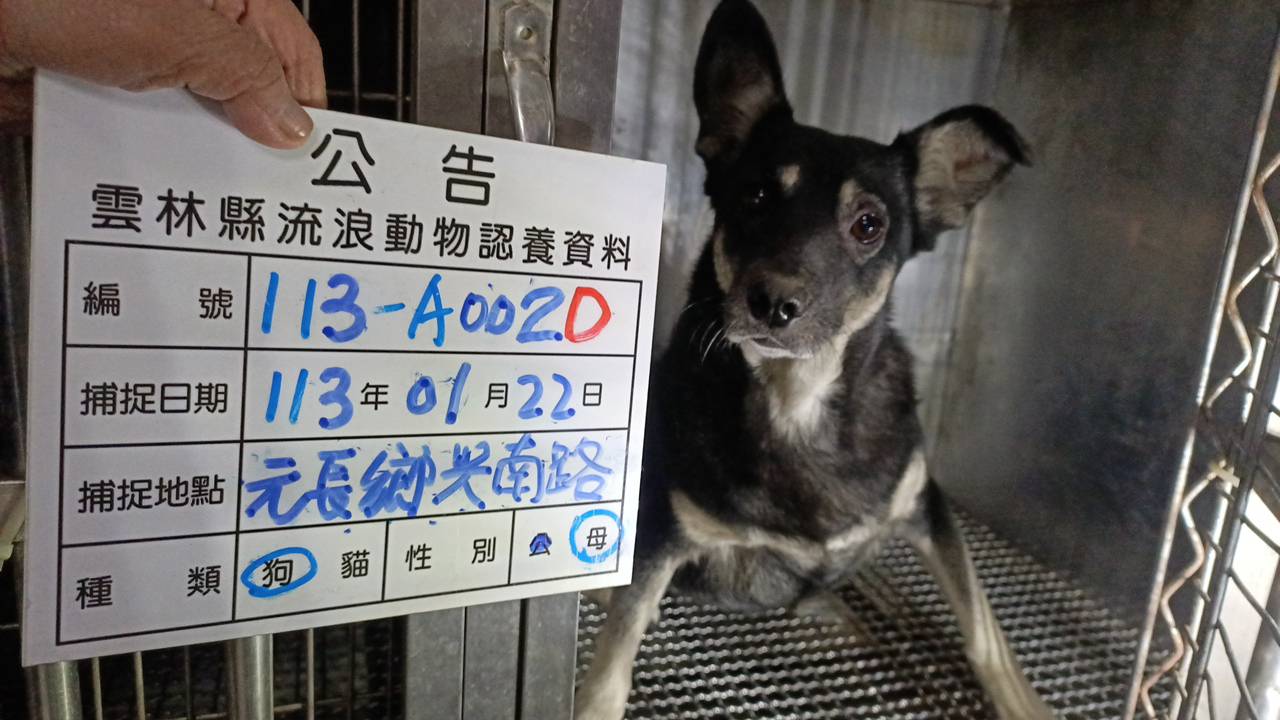 公告
雲林縣流浪動物認養資料
編號 113-A002D
捕捉日期 113年01月22日
捕捉地點 元長鄉興南路
種類 狗 貓 性別 公 母